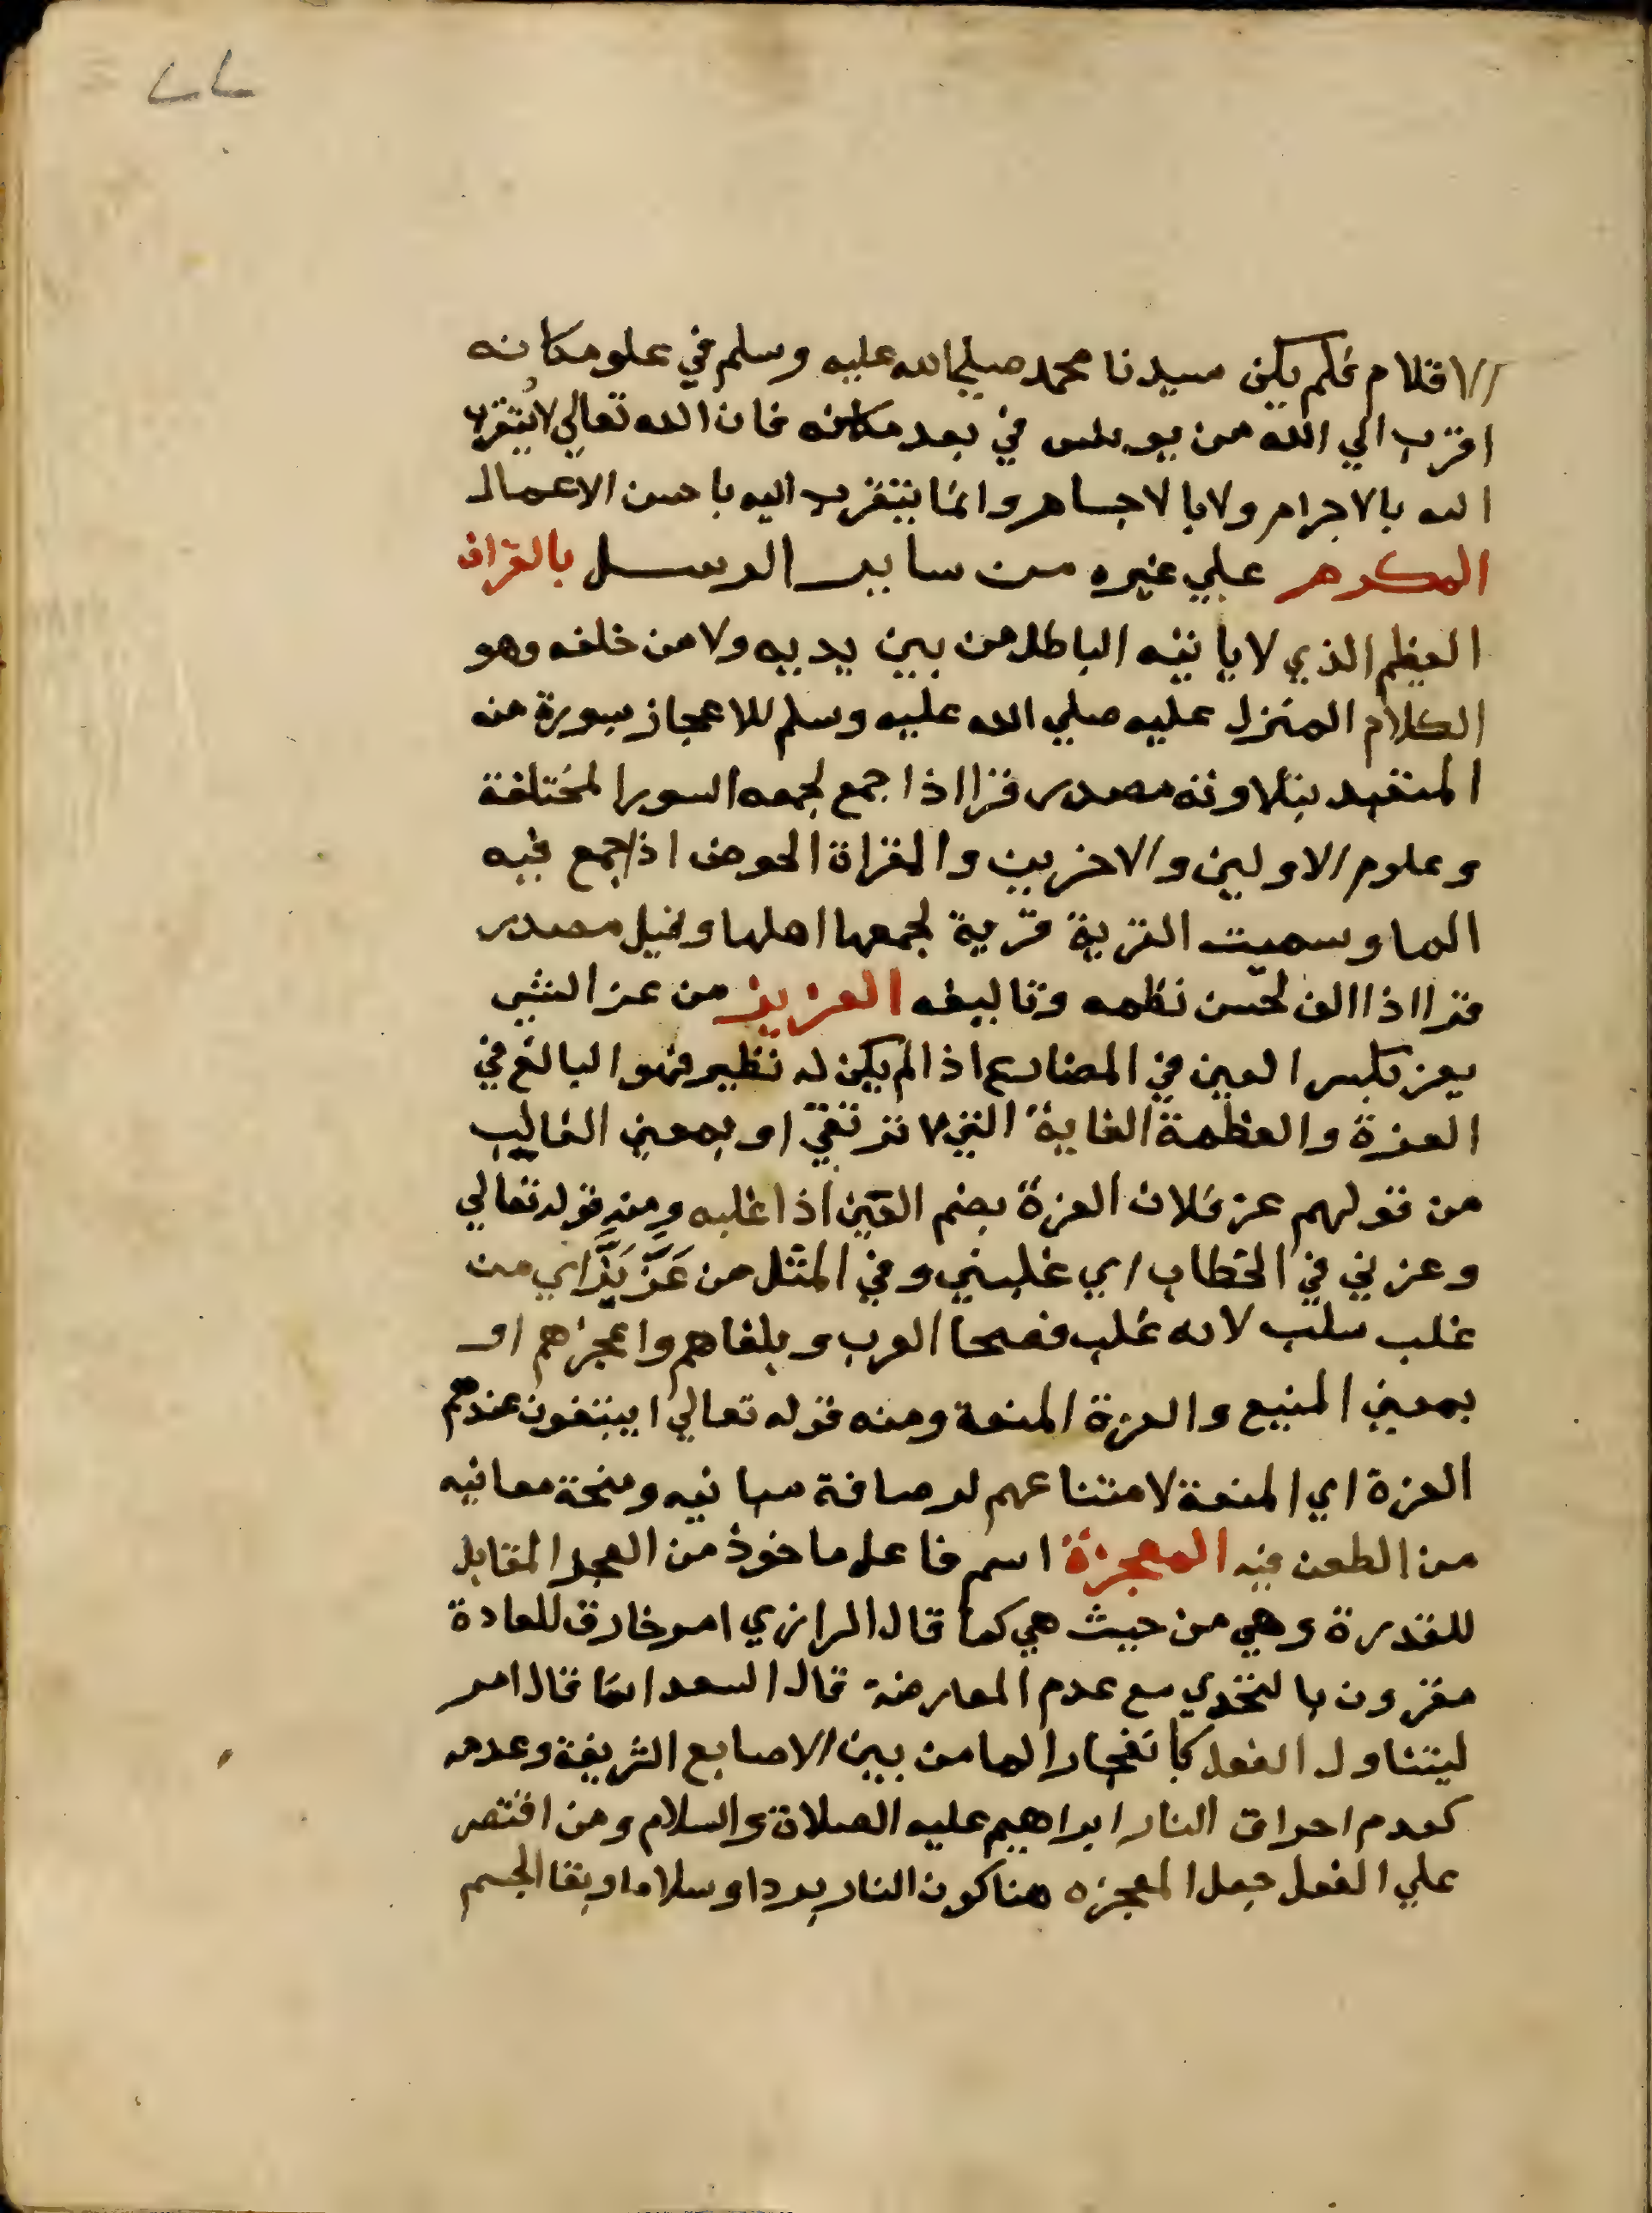 ٢٢
الاقلام فلم يكن سيدنا محمد صلي الله عليه وسلم في علو مكانه
اقرب الي الله من يونس في بعد مكانه فان الله تعالي لا يتقرب
اليه بالاجرام ولا بالاجسام وانما يتقرب اليه باحسن الاعمال
المكرم علي غيره من ساير الرسل بالقران
العظيم الذي لا ياتيه الباطل من بين يديه ولا من خلفه وهو
الكلام المنزل عليه صلي الله عليه وسلم للاعجاز بسورة منه
المتعبد بتلاوته مصدر قرا اذا جمع لجمعه السور المختلفة
وعلوم الاولين والاخرين والمقراة الحوض اذا جمع فيه
الما وسميت القرية قرية لجمعها اهلها وقيل مصدر
قرا اذا الف لحسن نظمه وتاليفه العزيز من عز الشي
يعز بكسر العين في المضارع اذا لم يكن له نظير فهو البالغ في
العزة والعظمة الغاية التي لا ترتقي او بمعني الغالب
من قولهم عز فلان العزة بضم العين اذا غلبه ومنه قوله تعالي
وعزني في الخطاب اي غلبني وفي المثل من عَزَّ بَزَّ اي من
غلب سلب لانه غلب فصحا العرب وبلغاهم واعجزهم او
بمعني المنيع والعزة المنعة ومنه قوله تعالي ايبتغون عندهم
العزة اي المنعة لامتناعهم لرصافة مبانيه وصحة معانيه
من الطعن فيه المعجزة اسم فاعل ماخوذ من العجز المقابل
للقدرة وهي من حيث هي كما قال الرازي امر خارق للعادة
مقرون بالتحدي مع عدم المعارضة قال السعد انما قال امر
ليتناول الفعل كانفجار الما من بين الاصابع الشريفة وعدمه
كعدم احراق النار ابراهيم عليه الصلاة والسلام ومن اقتصر
علي الفعل جعل المعجزه هنا كون النار بردا وسلاما وبقا الجسم